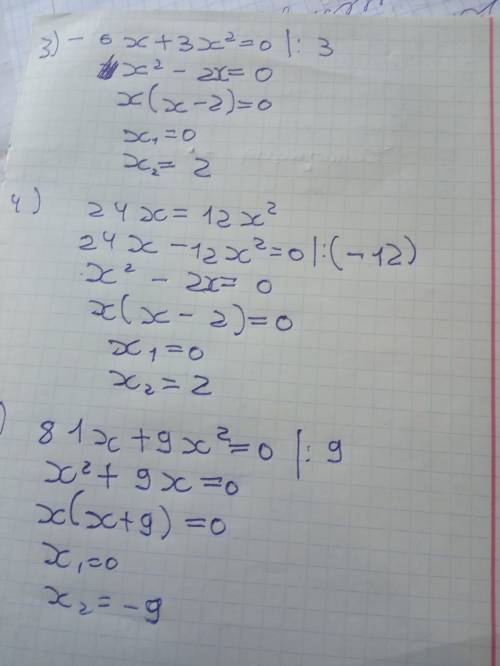 3) - 6x + 3x² = 0 |: 3
x² - 2x = 0
x(x - 2) = 0
x₁ = 0
x₂ = 2
4)
24x = 12x²
24x - 12x² = 0 |: (-12)
x² - 2x = 0
x(x - 2) = 0
x₁ = 0
x₂ = 2
)
81x + 9x² = 0 |: 9
x² + 9x = 0
x(x + 9) = 0
x₁ = 0
x₂ = -9